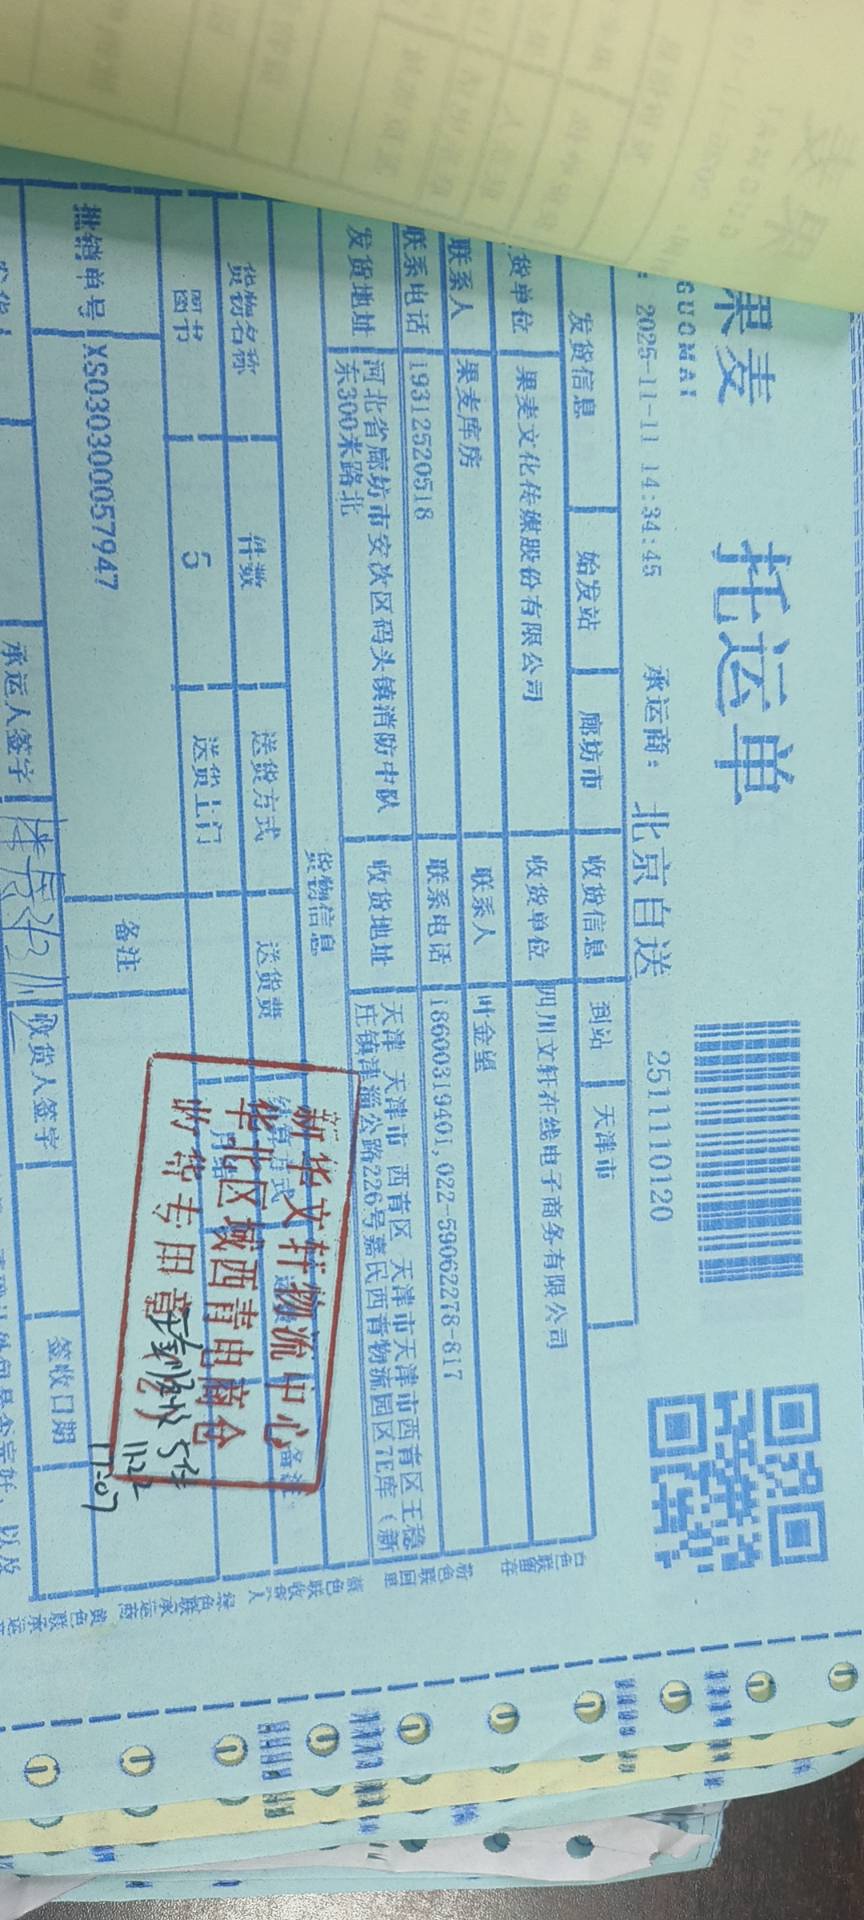 果麦 托运单
GUOMAI
2025-11-11 14:34:45 承运商： 北京自送 2511110120
发货信息 始发站 廊坊市 收货信息 到站 天津市
货单位 果麦文化传媒股份有限公司 收货单位 四川文轩在线电子商务有限公司
联系人 果麦库房 联系人 叶金望
联系电话 19312520518 联系电话 18600319401,022-59062278-817
发货地址 河北省廊坊市安次区码头镇消防中队 收货地址 天津 天津市 西青区 天津市天津市西青区王稳
东300米路北 庄镇津淄公路226号嘉民西青物流园区7E库（新
货物信息
货物名称 件数 送货方式 送货费 结算方式 备注
图书 5 送货上门
图书
批销单号 XS0303000057947 备注
承运人签字 收货人签字 签收日期
新华文轩物流中心
华北区域西青电商仓
收货专用章
5件
11.22
11:07
白色联留存
粉色联回单
蓝色联收货人
绿色联承运商
黄色联承运商